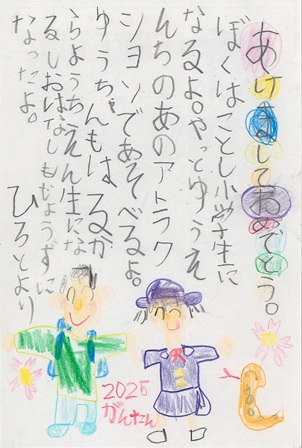 あけましておめでとう。
ぼくはことし小学生に
なるよ。やっとゆうえ
んちのあのアトラク
ションであそべるよ。
ゆうちゃんもはるか
らようちえん生にな
るしおはなしもじょうずに
なったよ。
ひろとより
2025
がんたん